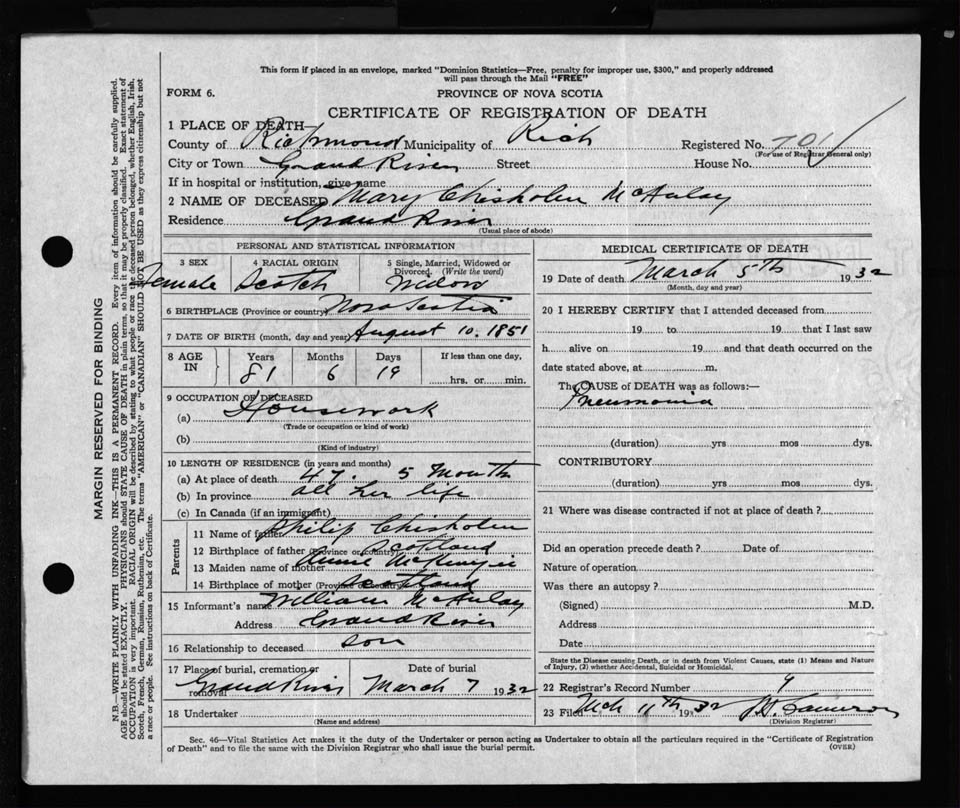 This form if placed in an envelope, marked "Dominion Statistics—Free, penalty for improper use, $300," and properly addressed
will pass through the Mail "FREE"
FORM 6.
PROVINCE OF NOVA SCOTIA
CERTIFICATE OF REGISTRATION OF DEATH
1 PLACE OF DEATH—
County of Richmond Municipality of Rich Registered No. 701
(For use of Registrar General only)
City or Town Grand River Street House No.
If in hospital or institution, give name
2 NAME OF DECEASED Mary Chisholm McAulay
Residence Grand River
(Usual place of abode)
PERSONAL AND STATISTICAL INFORMATION
3 SEX 4 RACIAL ORIGIN 5 Single, Married, Widowed or Divorced. (Write the word)
Female Scotch Widow
6 BIRTHPLACE (Province or country) Nova Scotia
7 DATE OF BIRTH (month, day and year) August 10. 1851
8 AGE IN Years Months Days If less than one day,
81 6 19 hrs. or min.
9 OCCUPATION OF DECEASED
(a) Housework
(Trade or occupation or kind of work)
(b)
(Kind of industry)
10 LENGTH OF RESIDENCE (in years and months)
(a) At place of death 47. 5 Month
(b) In province all her life
(c) In Canada (if an immigrant)
Parents
11 Name of father Philip Chisholm
12 Birthplace of father (Province or country) Scotland
13 Maiden name of mother Annie McKenzie
14 Birthplace of mother (Province or country) Scotland
15 Informant's name William McAulay
Address Grand River
16 Relationship to deceased son
17 Place of burial, cremation or removal Date of burial
Grand River March 7 1932
18 Undertaker
(Name and address)
MEDICAL CERTIFICATE OF DEATH
19 Date of death March 5th 1932
(Month, day and year)
20 I HEREBY CERTIFY that I attended deceased from
19 to 19 that I last saw
h alive on 19 and that death occurred on the
date stated above, at m.
The CAUSE of DEATH was as follows:—
Pneumonia
(duration) yrs mos dys.
CONTRIBUTORY
(duration) yrs mos dys.
21 Where was disease contracted if not at place of death?
Did an operation precede death? Date of
Nature of operation
Was there an autopsy?
(Signed) M.D.
Address
Date
State the Disease causing Death, or in death from Violent Causes, state (1) Means and Nature
of Injury, (2) whether Accidental, Suicidal or Homicidal.
22 Registrar's Record Number 9
23 Filed Mch 11th 1932 Cameron
(Division Registrar)
Sec. 46—Vital Statistics Act makes it the duty of the Undertaker or person acting as Undertaker to obtain all the particulars required in the "Certificate of Registration
of Death" and to file the same with the Division Registrar who shall issue the burial permit. (OVER)
MARGIN RESERVED FOR BINDING
N.B.—WRITE PLAINLY WITH UNFADING INK—THIS IS A PERMANENT RECORD. Every item of information should be carefully supplied.
AGE should be stated EXACTLY. PHYSICIANS should STATE CAUSE OF DEATH in plain terms, so that it may be properly classified. Exact statement of
OCCUPATION is very important. RACIAL ORIGIN will be described by stating to what people or race the deceased person belonged, whether English, Irish,
Scotch, French, German, Russian, Ruthenian, etc. The terms "AMERICAN" or "CANADIAN" SHOULD NOT BE USED as they express citizenship but not
a race or people. See instructions on back of Certificate.